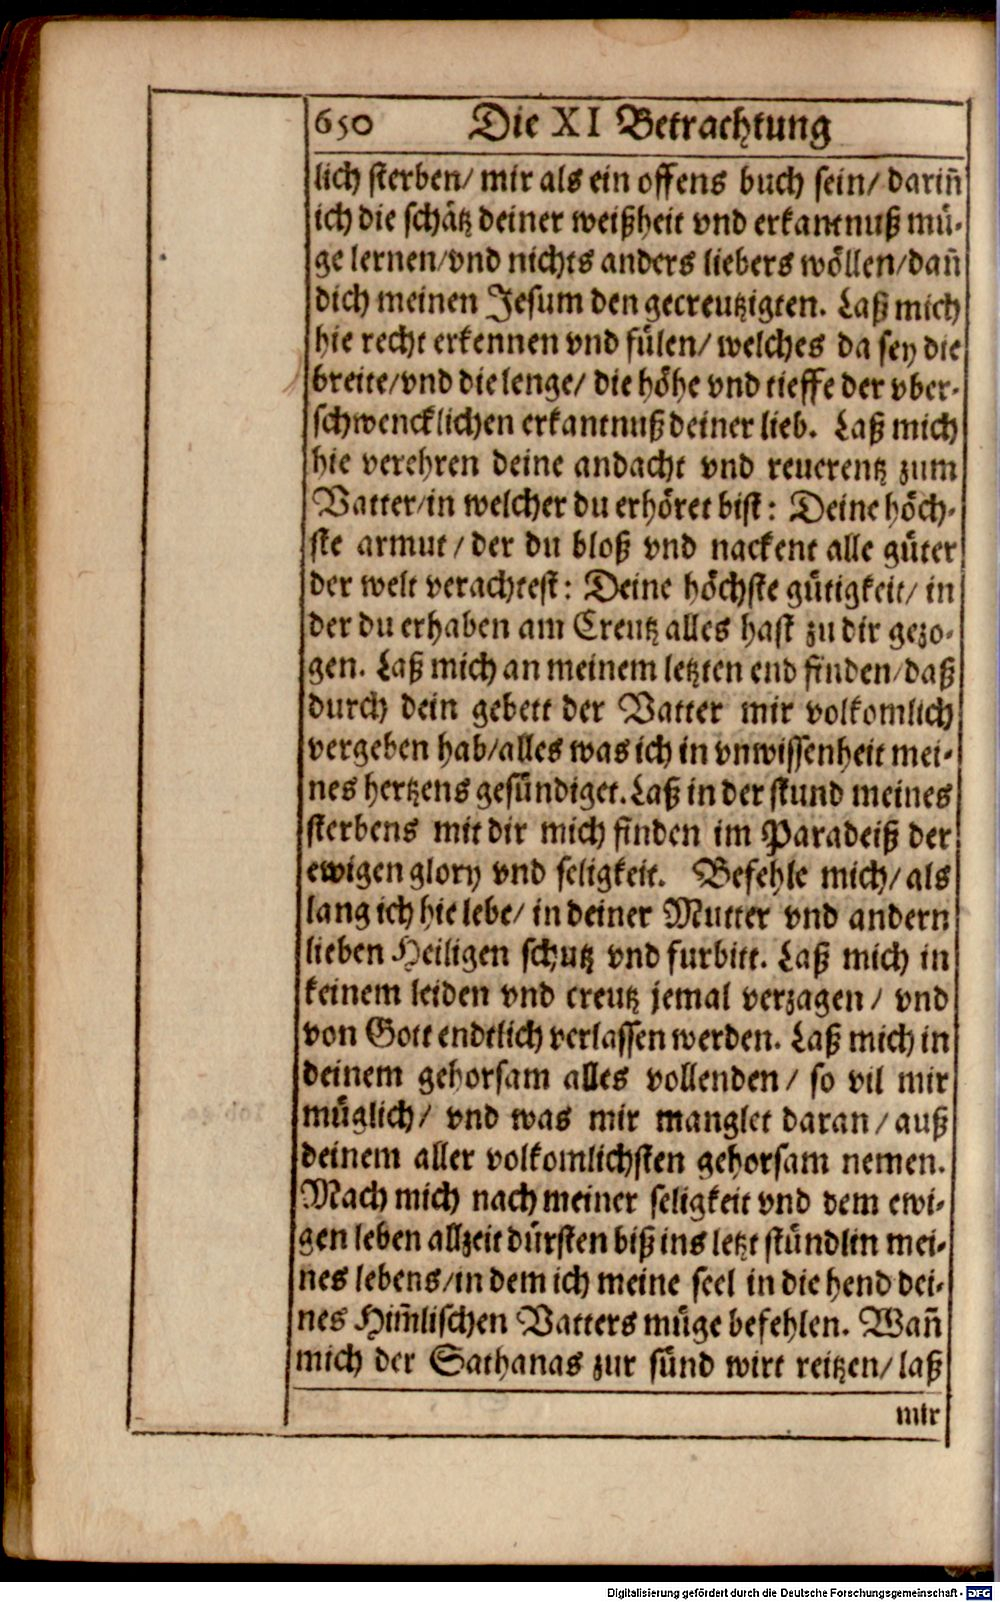 650 Die XI Betrachtung
lich sterben/ mir als ein offens buch sein/ darin̄
ich die schätz deiner weißheit vnd erkantnuß mü-
ge lernen/vnd nichts anders liebers wöllen/dan̄
dich meinen Jesum den gecreutzigten. Laß mich
hie recht erkennen vnd fülen/ welches da sey die
breite/vnd die lenge/ die höhe vnd tieffe der vber-
schwencklichen erkantnuß deiner lieb. Laß mich
hie verehren deine andacht vnd reuerentz zum
Vatter/in welcher du erhöret bist: Deine höch-
ste armut/ der du bloß vnd nackent alle güter
der welt verachtest: Deine höchste gütigkeit/ in
der du erhaben am Creutz alles hast zu dir gezo-
gen. Laß mich an meinem letzten end finden/daß
durch dein gebett der Vatter mir volkomlich
vergeben hab/alles was ich in vnwissenheit mei-
nes hertzens gesündiget. Laß in der stund meines
sterbens mit dir mich finden im Paradeiß der
ewigen glory vnd seligkeit. Befehle mich/ als
lang ich hie lebe/ in deiner Mutter vnd andern
lieben Heiligen schutz vnd furbitt. Laß mich in
keinem leiden vnd creutz jemal verzagen/ vnd
von Gott endtlich verlassen werden. Laß mich in
deinem gehorsam alles vollenden/ so vil mir
müglich/ vnd was mir manglet daran/ auß
deinem aller volkomlichsten gehorsam nemen.
Mach mich nach meiner seligkeit vnd dem ewi-
gen leben allzeit dürsten biß ins letzt stündlin mei-
nes lebens/in dem ich meine seel in die hend dei-
nes Him̄lischen Vatters müge befehlen. Wan̄
mich der Sathanas zur sünd wirt reitzen/ laß
mir
Digitalisierung gefördert durch die Deutsche Forschungsgemeinschaft - DFG